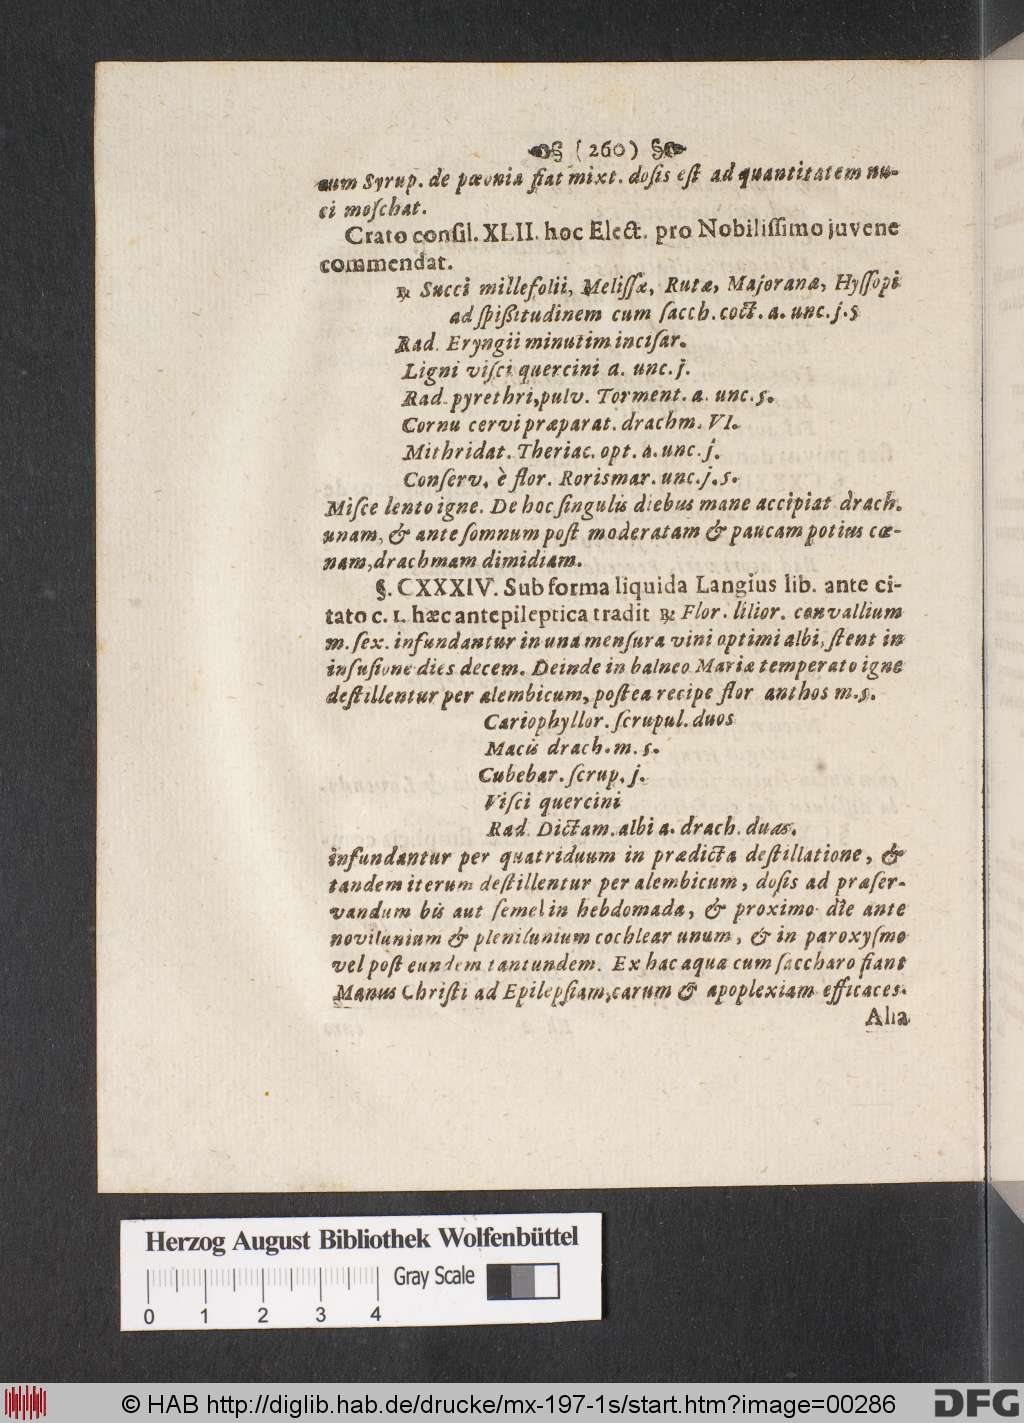 ( 260 )
cum Syrup. de pæonia fiat mixt. dosis est ad quantitatem nu-
ci moschat.
Crato consil. XLII. hoc Elect. pro Nobilissimo juvene
commendat.
℞ Succi millefolii, Melissæ, Rutæ, Majoranæ, Hyssopi
ad spißitudinem cum sacch. coct. a. unc. j. ß
Rad. Eryngii minutim incisar.
Ligni visci quercini a. unc. j.
Rad. pyrethri, pulv. Torment. a. unc. ß.
Cornu cervi præparat. drachm. VI.
Mithridat. Theriac. opt. a. unc. j.
Conserv. è flor. Rorismar. unc. j. ß.
Misce lento igne. De hoc singulis diebus mane accipiat drach.
unam, & ante somnum post moderatam & paucam potius cœ-
nam, drachmam dimidiam.
§. CXXXIV. Sub forma liquida Langius lib. ante ci-
tato c. 1. hæc antepileptica tradit ℞ Flor. lilior. convallium
m. sex. infundantur in una mensura vini optimi albi, stent in
infusione dies decem. Deinde in balneo Mariæ temperato igne
destillentur per alembicum, postea recipe flor anthos m. ß.
Cariophyllor. scrupul. duos
Macis drach. m. ß.
Cubebar. scrup. j.
Visci quercini
Rad. Dictam. albi a. drach. duas.
infundantur per quatriduum in prædicta destillatione, &
tandem iterum destillentur per alembicum, dosis ad præser-
vandum bis aut semel in hebdomada, & proximo die ante
novilunium & plenilunium cochlear unum, & in paroxysmo
vel post eundem tantundem. Ex hac aqua cum saccharo fiant
Manus Christi ad Epilepsiam, carum & apoplexiam efficaces.
Alia
Herzog August Bibliothek Wolfenbüttel
Gray Scale
0 1 2 3 4
© HAB http://diglib.hab.de/drucke/mx-197-1s/start.htm?image=00286
DFG